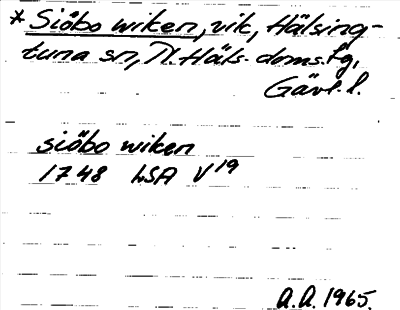 * Siöbo wiken, vik, Hälsing-
tuna sn, N. Häls. doms. tg,
Gävl. l.
siöbo wiken
1748 LSA V19
A.A. 1965.